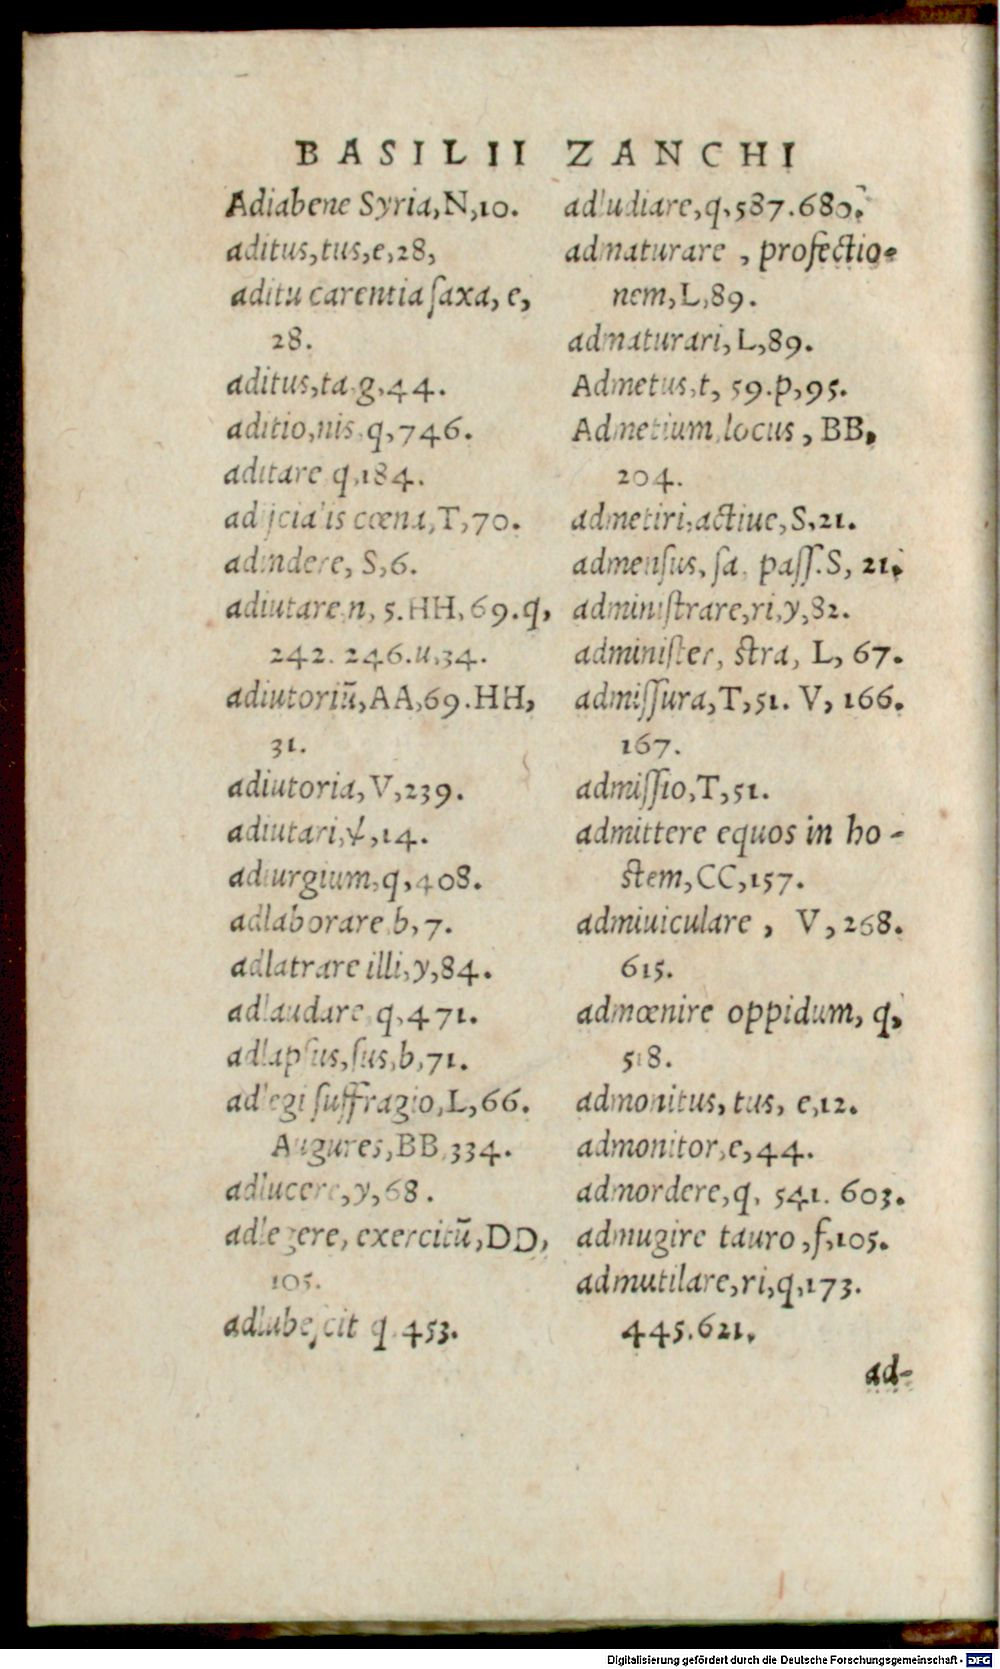 BASILII ZANCHI
Adiabene Syria,N,10.
aditus,tus,e,28,
aditu carentia ſaxa, e,
28.
aditus,ta,g,44.
aditio,nis,q,746.
aditare q,184.
adijcialis cœna,T,70.
adindere, S,6.
adiutare n, 5.HH,69.q,
242. 246.u,34.
adiutoriū,AA,69.HH,
31.
adiutoria,V,239.
adiutari,ψ,14.
adiurgium,q,408.
adlaborare b,7.
adlatrare illi,y,84.
adlaudare q,471.
adlapſus,ſus,b,71.
adlegi ſuffragio,L,66.
Augures,BB,334.
adlucere,y,68.
adlegere, exercitū,DD,
105.
adlubeſcit q 453.
adludiare,q,587.680.
admaturare , profectio-
nem,L,89.
admaturari,L,89.
Admetus,t, 59.p,95.
Admetium locus , BB,
204.
admetiri,actiue,S,21.
admenſus, ſa, paſſ.S, 21.
adminiſtrare,ri,y,82.
adminiſter, ſtra, L, 67.
admiſſura,T,51. V, 166.
167.
admiſſio,T,51.
admittere equos in ho-
ſtem,CC,157.
admiuiculare , V,268.
615.
admœnire oppidum, q,
518.
admonitus, tus, e,12.
admonitor,e,44.
admordere,q, 541. 603.
admugire tauro ,f,105.
admutilare,ri,q,173.
445.621.
ad-
Digitalisierung gefördert durch die Deutsche Forschungsgemeinschaft - DFG